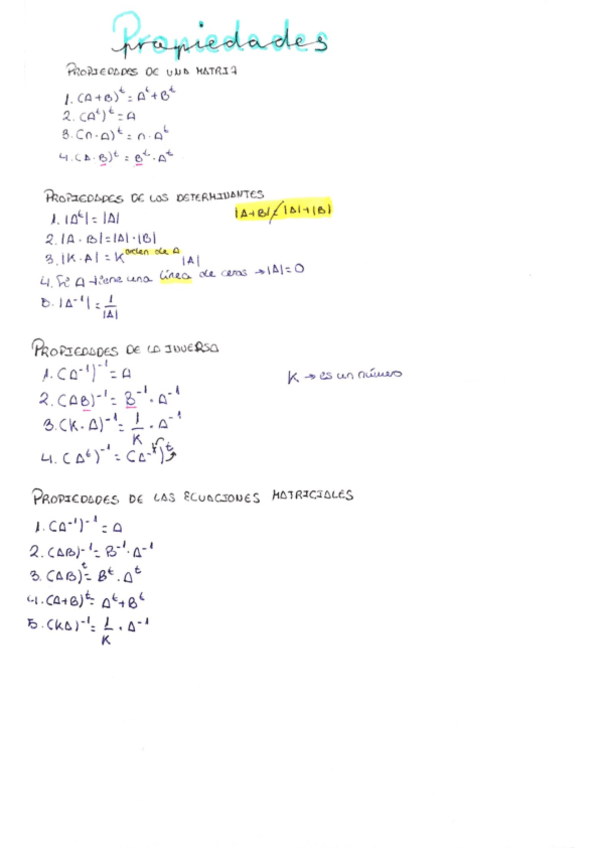 Propiedades
PROPIEDADES DE UNA MATRIZ
1. (A+B)ᵗ = Aᵗ+Bᵗ
2. (Aᵗ)ᵗ = A
3. (n·A)ᵗ = n·Aᵗ
4. (A·B)ᵗ = Bᵗ·Aᵗ
PROPIEDADES DE LOS DETERMINANTES
|A+B| ≠ |A|+|B|
1. |Aᵗ| = |A|
2. |A·B| = |A|·|B|
3. |K·A| = K^orden de A |A|
4. Si A tiene una línea de ceros → |A| = 0
5. |A⁻¹| = 1/|A|
PROPIEDADES DE LA INVERSA
1. (A⁻¹)⁻¹ = A
K → es un número
2. (AB)⁻¹ = B⁻¹·A⁻¹
3. (K·A)⁻¹ = 1/K · A⁻¹
4. (Aᵗ)⁻¹ = (A⁻¹)ᵗ
PROPIEDADES DE LAS ECUACIONES MATRICIALES
1. (A⁻¹)⁻¹ = A
2. (AB)⁻¹ = B⁻¹·A⁻¹
3. (AB)ᵗ = Bᵗ·Aᵗ
4. (A+B)ᵗ = Aᵗ+Bᵗ
5. (KA)⁻¹ = 1/K · A⁻¹